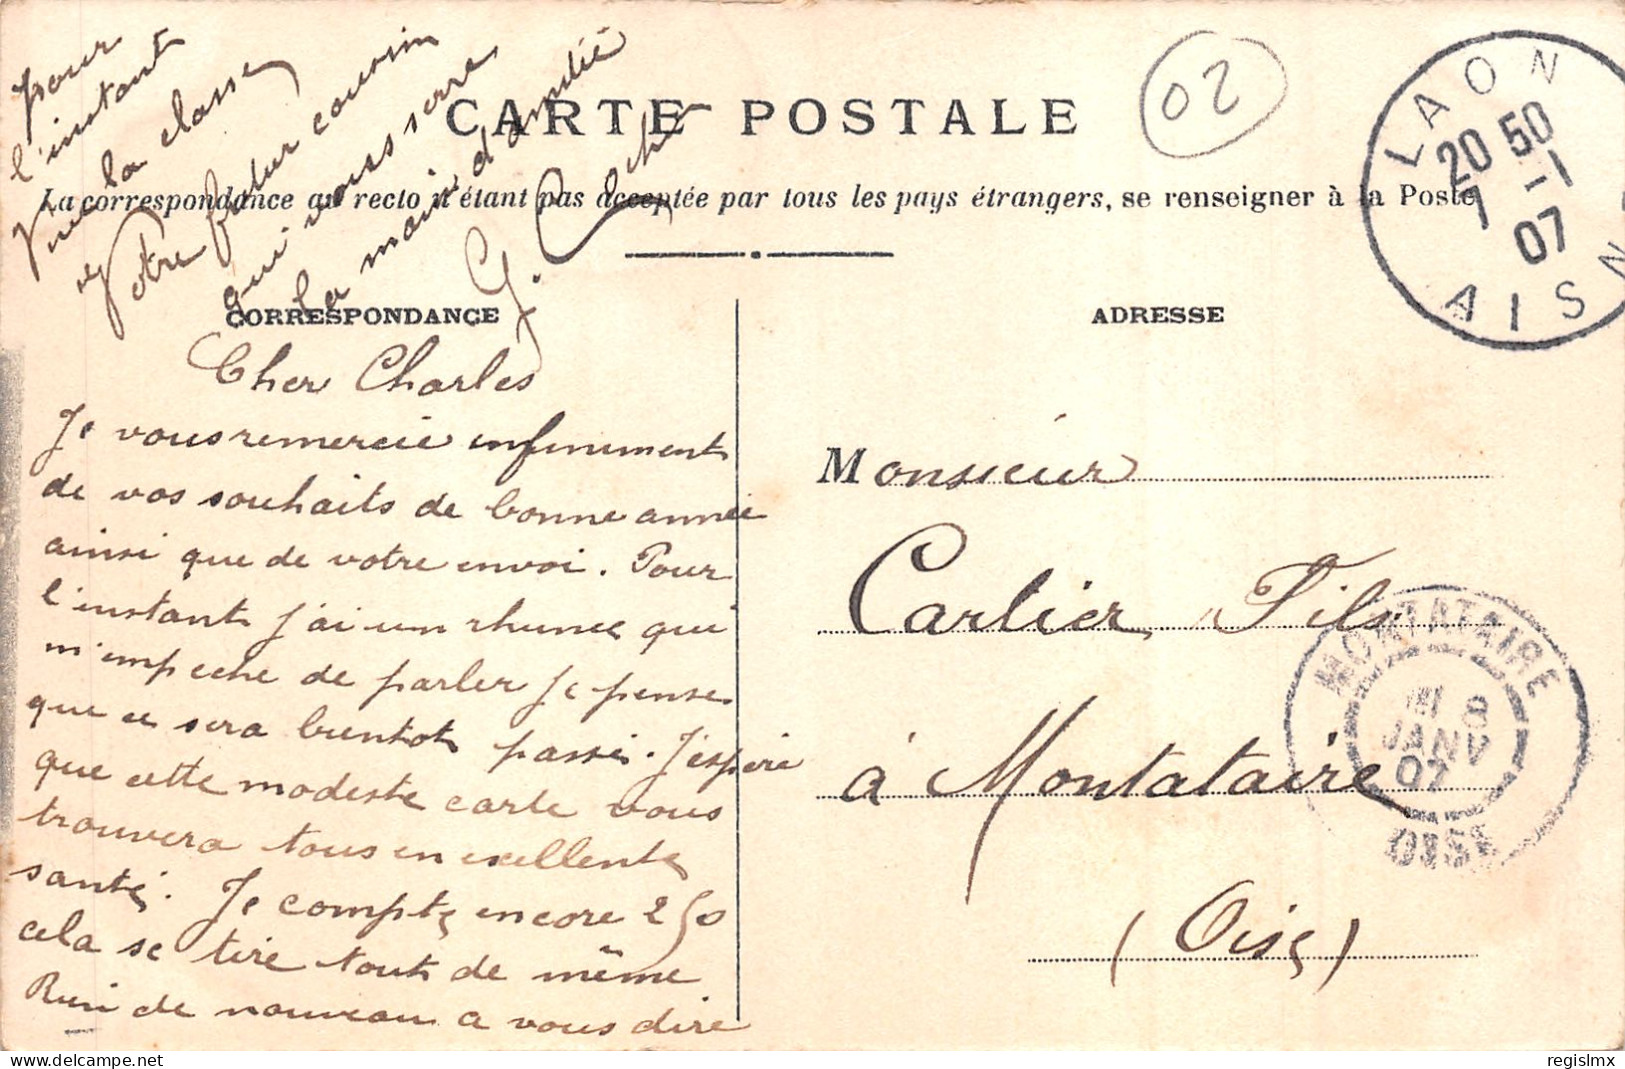 CARTE POSTALE
02
La correspondance au recto n'étant pas acceptée par tous les pays étrangers, se renseigner à la Poste
LAON
20 50
7 -1
07
AISNE
CORRESPONDANCE
ADRESSE
Cher Charles
Je vous remercie infiniment
de vos souhaits de bonne année
ainsi que de votre envoi. Pour
l'instant j'ai un rhume qui
m'empeche de parler je pense
que ce sera bientot passé. J'espère
que cette modeste carte vous
trouvera tous en excellente
santé. Je compte encore 250
cela se tire tout de même
Rien de nouveau a vous dire
pour
l'instant
Vive la classe
Votre futur cousin
qui vous serre
la main d'amitié
G.
Monsieur
Carlier Fils
à Montataire
(Oise)
MONTATAIRE
8
JANV
07
OISE
regislmx